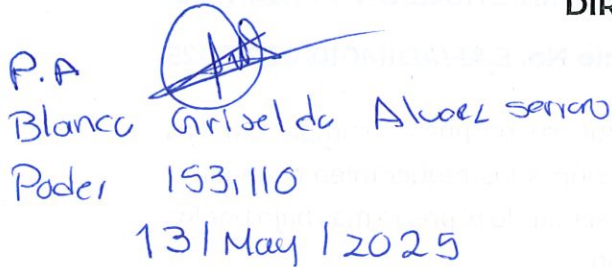 DIR
P.A
Blanca Griselda Alvarez serrano
Poder 153,110
13/May/2025